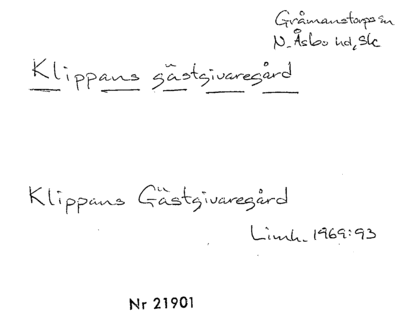 Gråmanstorps sn
N. Åsbo hd, Sk
Klippans gästgivaregård
Klippans Gästgivaregård
Limh. 1969:93
Nr 21901